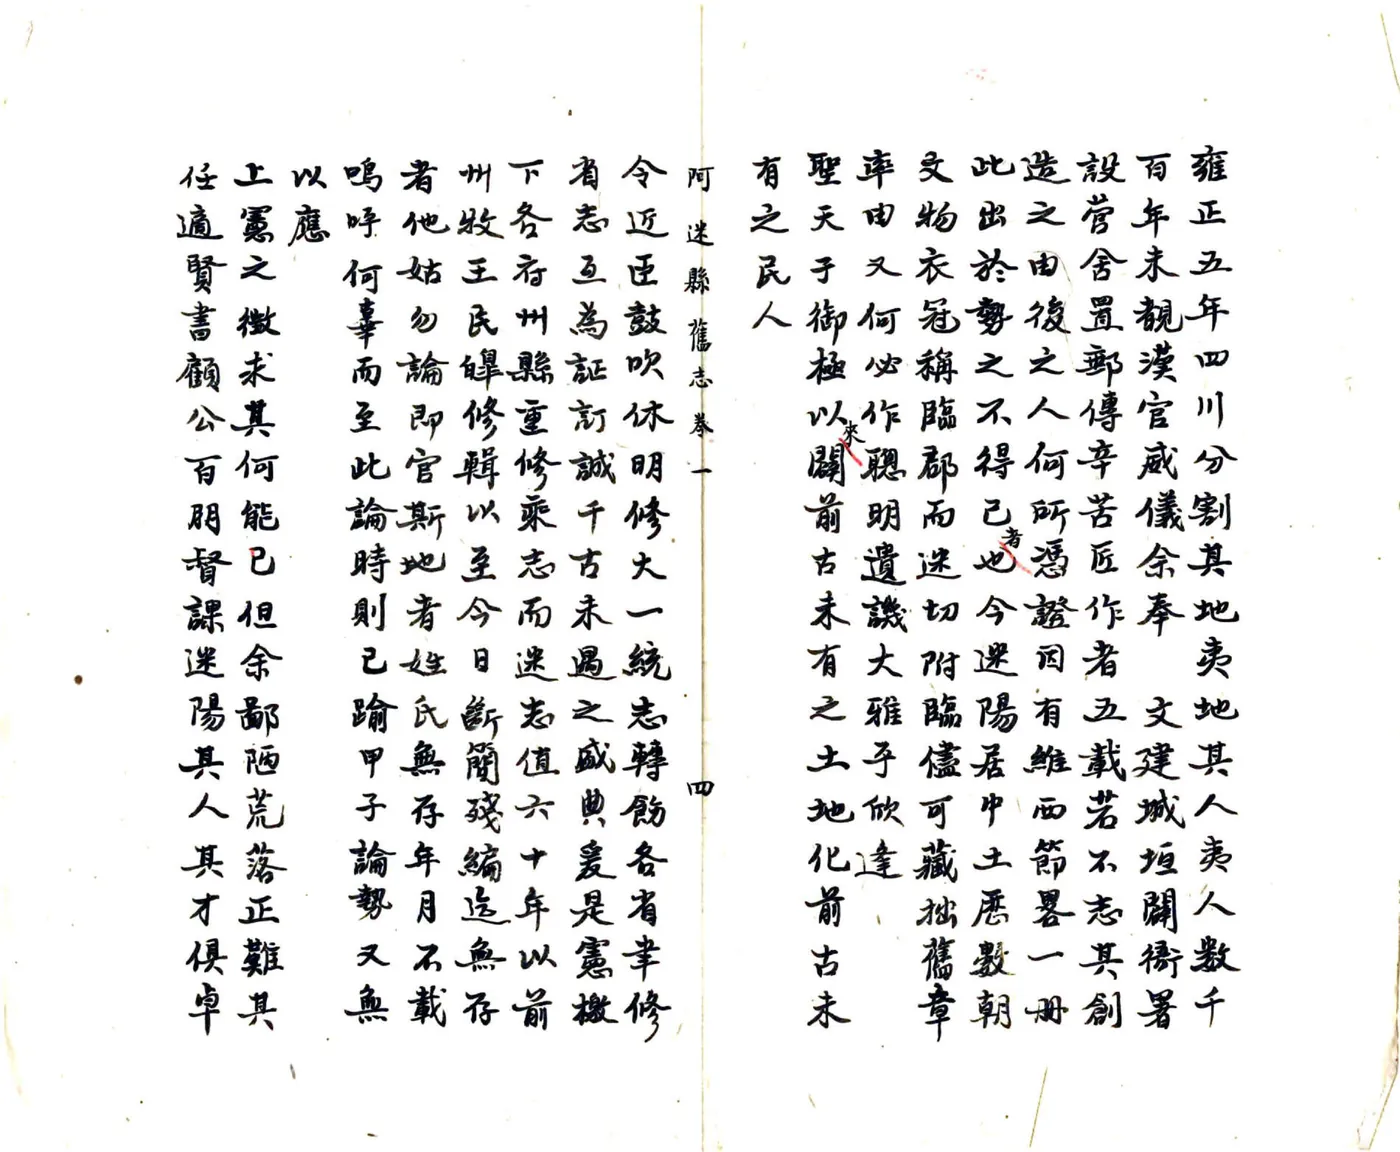 雍正五年四川分割其地夷地其人夷人數千
百年未覩漢官威儀余奉　文建城垣闢衙署
設營舍置郵傳辛苦匠作者五載若不志其創
造之由後之人何所憑證因有維西節畧一冊
此出於勢之不得已也者今迷陽居中土歷數朝
文物衣冠稱臨郡而迷切附臨儘可藏拙舊章
率由又何必作聰明遺譏大雅乎欣逢
聖天子御極以來闢前古未有之土地化前古未
有之民人
阿迷縣舊志卷一　四
令近臣鼓吹休明修大一統志轉飭各省聿修
省志互為証訂誠千古未遇之盛典爰是憲檄
下各府州縣重修乘志而迷志值六十年以前
州牧王民皞修輯以至今日斷簡殘編迄無存
者他姑勿論即官斯地者姓氏無存年月不載
嗚呼何辜而至此論時則已踰甲子論勢又無
以應
上憲之徵求其何能已但余鄙陋荒落正難其
任適賢書顧公百朋督課迷陽其人其才俱卓